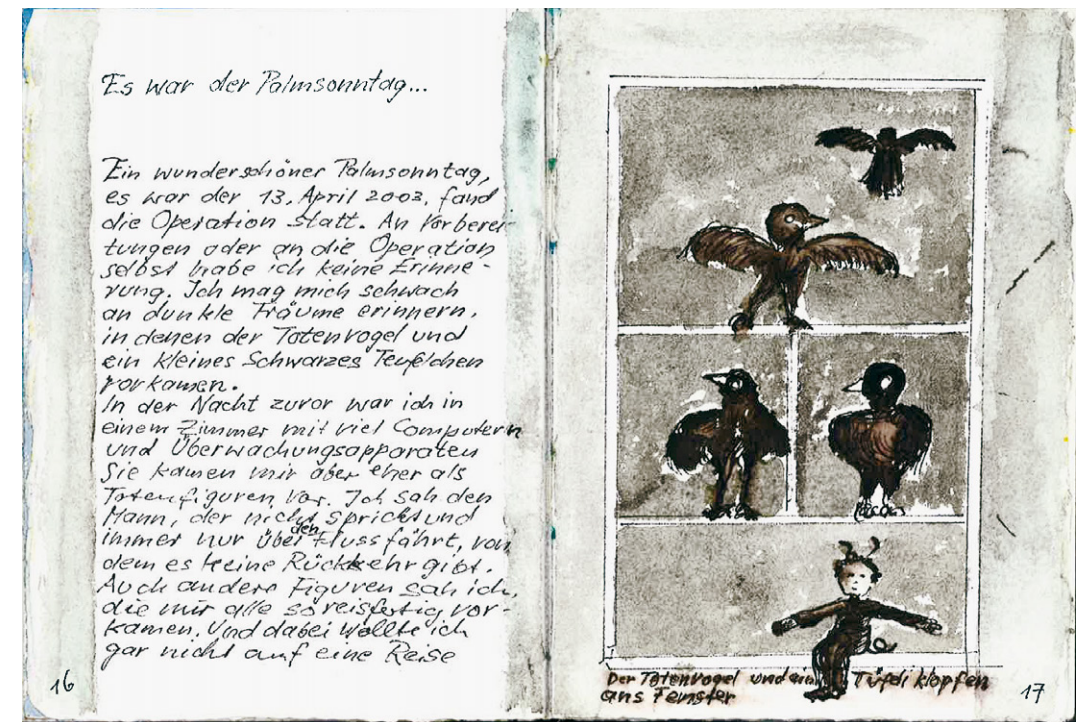 Es war der Palmsonntag...
Ein wunderschöner Palmsonntag,
es war der 13. April 2003, fand
die Operation statt. An Vorberei-
tungen oder an die Operation
selbst habe ich keine Erinne-
rung. Ich mag mich schwach
an dunkle Träume erinnern,
in denen der Totenvogel und
ein kleines Schwarzes Teufelchen
vorkamen.
In der Nacht zuvor war ich in
einem Zimmer mit viel Computern
und Überwachungsapparaten
Sie kamen mir aber eher als
Totenfiguren vor. Ich sah den
Mann, der nicht spricht und
immer nur über den Fluss fährt, von
dem es keine Rückkehr gibt.
Auch andere Figuren sah ich,
die mir alle so reisfertig vor-
kamen. Und dabei wollte ich
gar nicht auf eine Reise
16
Der Totenvogel und ein Tüfeli klopfen
ans Fenster
17